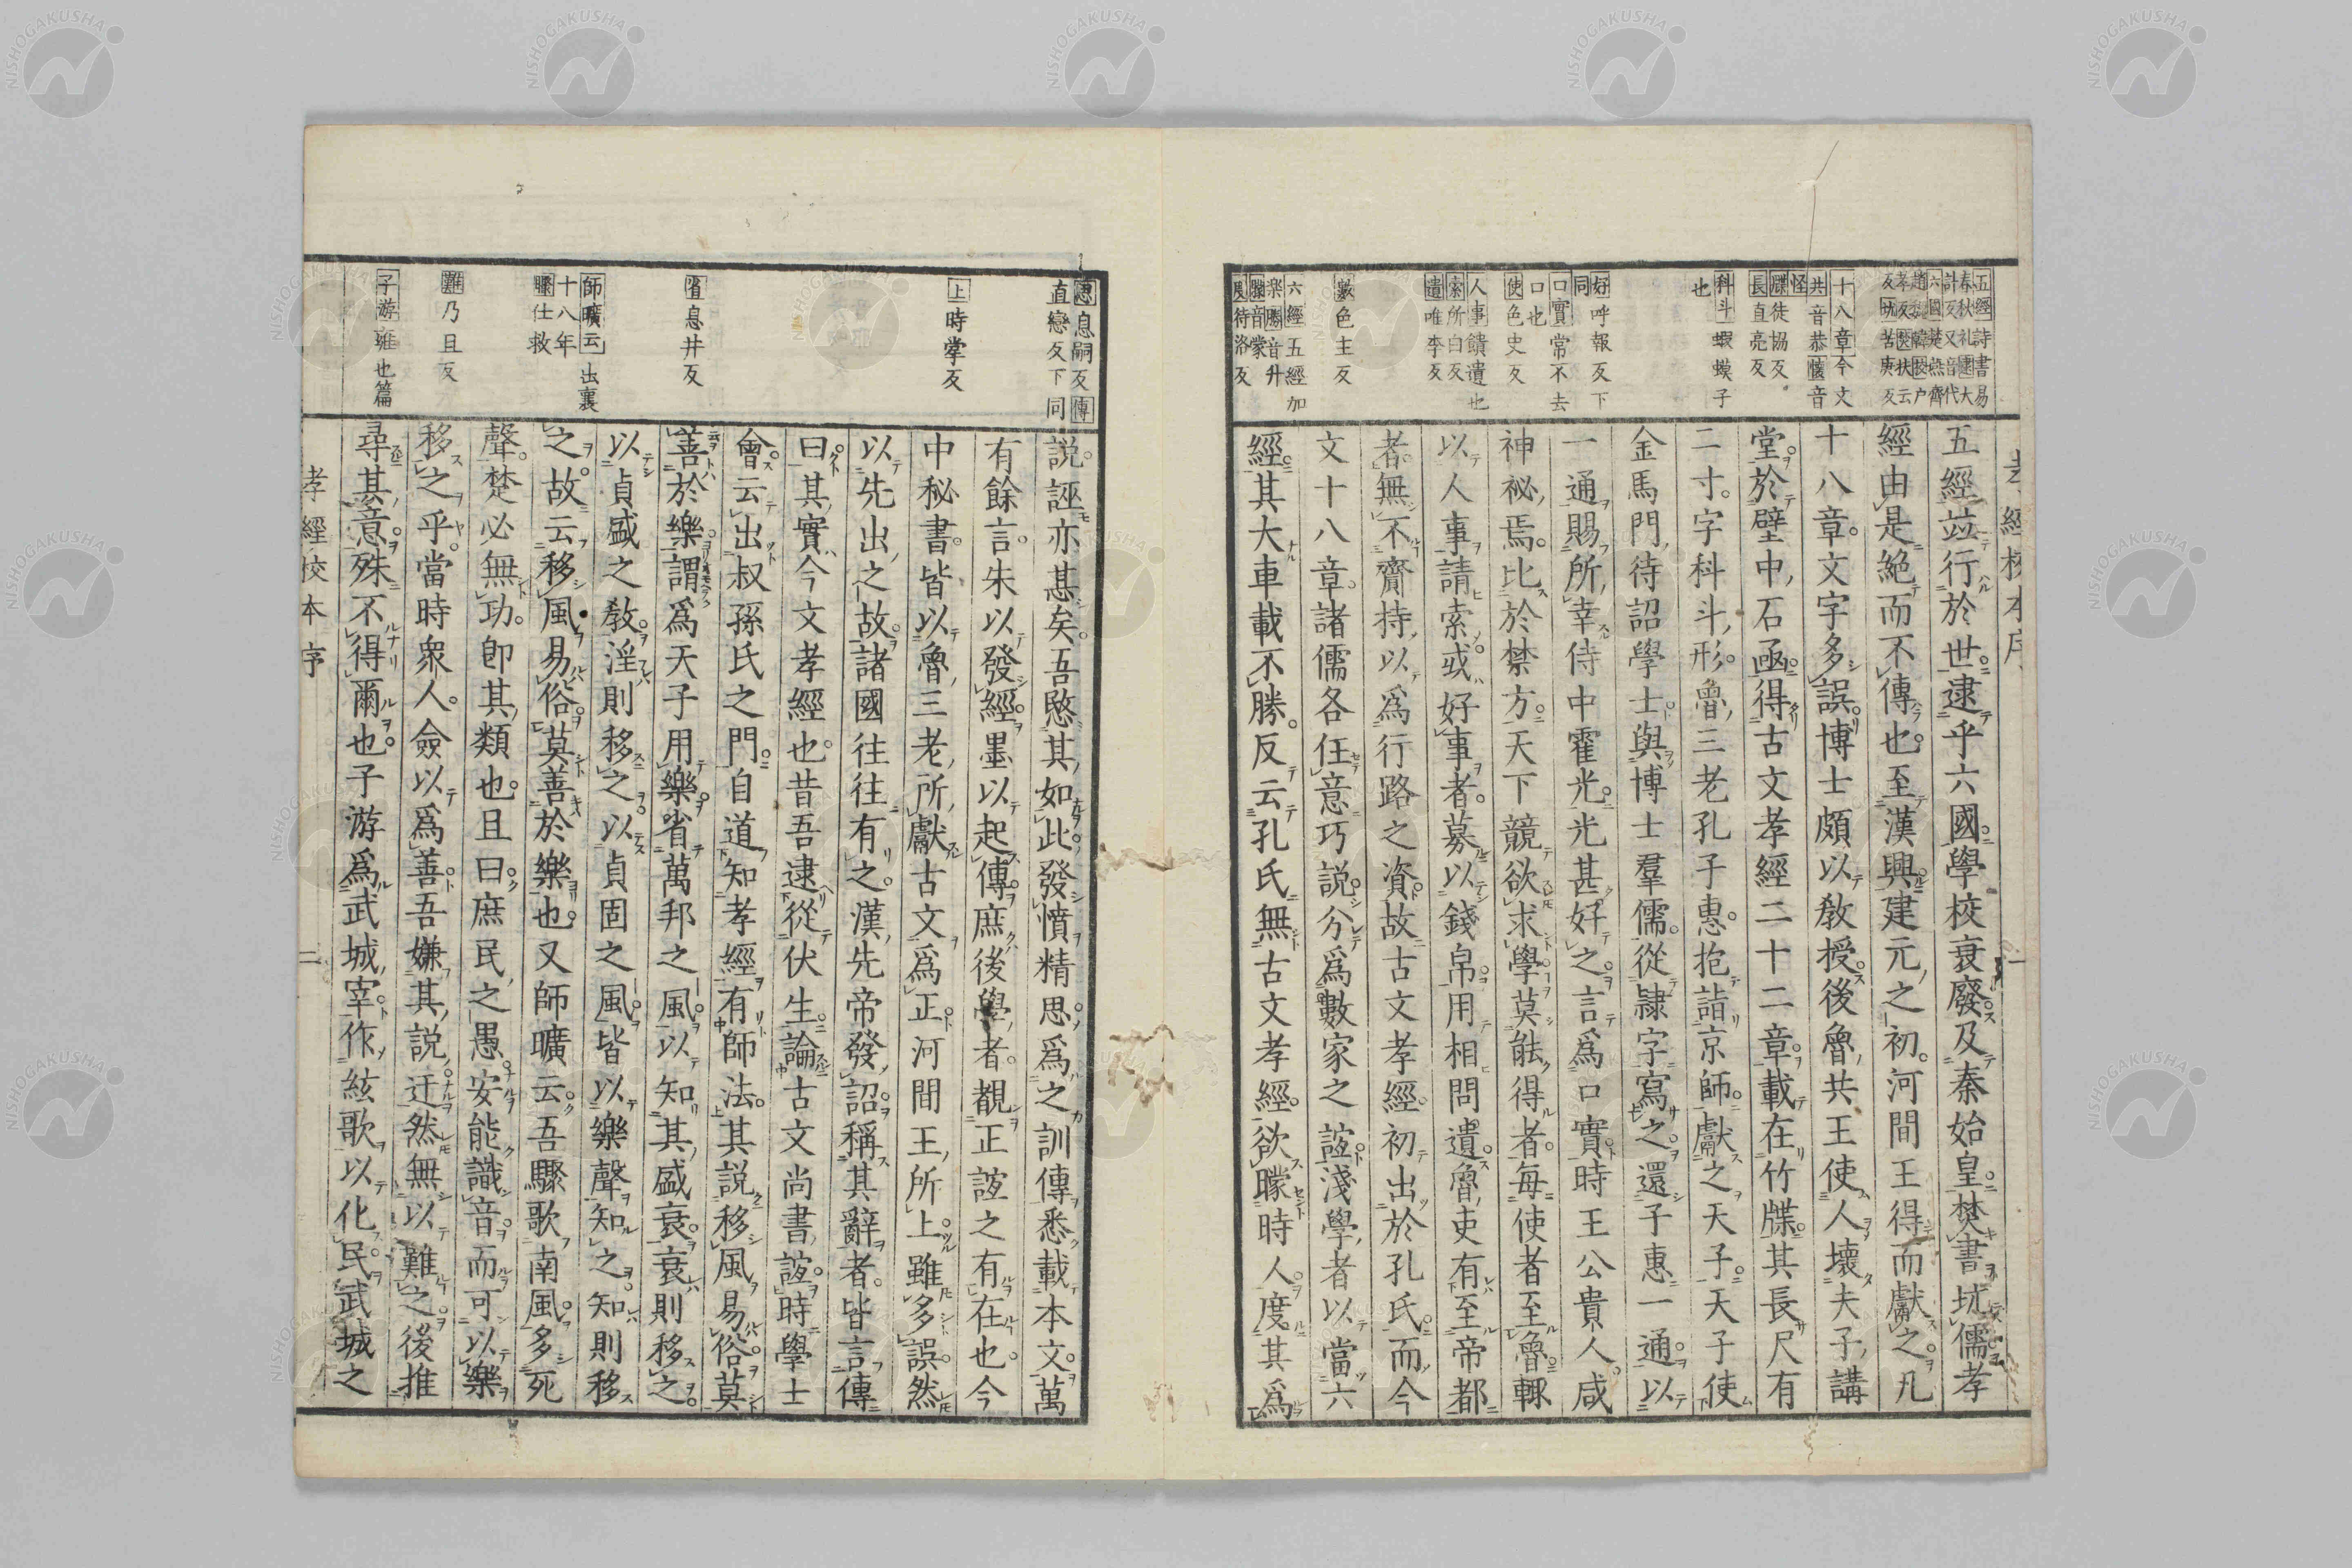 五經竝行於世逮乎六國學校衰廢及秦始皇焚書坑儒孝
經由是絶而不傳也至漢興建元之初河間王得而獻之凡
十八章文字多誤博士頗以敎授後魯共王使人壞夫子講
堂於壁中石函得古文孝經二十二章載在竹牒其長尺有
二寸字科斗形魯三老孔子惠抱詣京師獻之天子天子使
金馬門待詔學士與博士羣儒從隷字寫之還子惠一通以
一通賜所幸侍中霍光光甚好之言爲口實時王公貴人咸
神祕焉比於禁方天下競欲求學莫能得者每使者至魯輒
以人事請索或好事者募以錢帛用相問遺魯吏有至帝都
者無不齎持以爲行路之資故古文孝經初出於孔氏而今
文十八章諸儒各任意巧説分爲數家之誼淺學者以當六
經其大車載不勝反云孔氏無古文孝經欲矇時人度其爲
説誣亦甚矣吾愍其如此發憤精思爲之訓傳悉載本文萬
有餘言朱以發經墨以起傳庶後學者覩正誼之有在也今
中秘書皆以魯三老所獻古文爲正河間王所上雖多誤然
以先出之故諸國往往有之漢先帝發詔稱其辭者皆言傳
曰其實今文孝經也昔吾逮從伏生論古文尚書誼時學士
會云出叔孫氏之門自道知孝經有師法其説移風易俗莫
善於樂謂爲天子用樂省萬邦之風以知其盛衰衰則移之
以貞盛之敎淫則移之以貞固之風皆以樂聲知之知則移
之故云移風易俗莫善於樂也又師曠云吾驟歌南風多死
聲楚必無功即其類也且曰庶民之愚安能識音而可以樂
移之乎當時衆人僉以爲善吾嫌其説迂然無以難之後推
尋其意殊不得爾也子游爲武城宰作絃歌以化民武城之
孝經校本序
二
十八章今文
共音恭懷音
怪
牒徒協反
長直亮反
科斗蝦蟆子
也
好呼報反下
同
口實常不去
口也
使色史反
人事饋遺也
索所白反
遺唯季反
數色主反
六經五經加
樂勝音升
矇音蒙
度待洛反
愍息嗣反傳
直戀反下同
上時掌反
省息井反
師曠云出襄
十八年
驟仕救
難乃且反
子游雍也篇